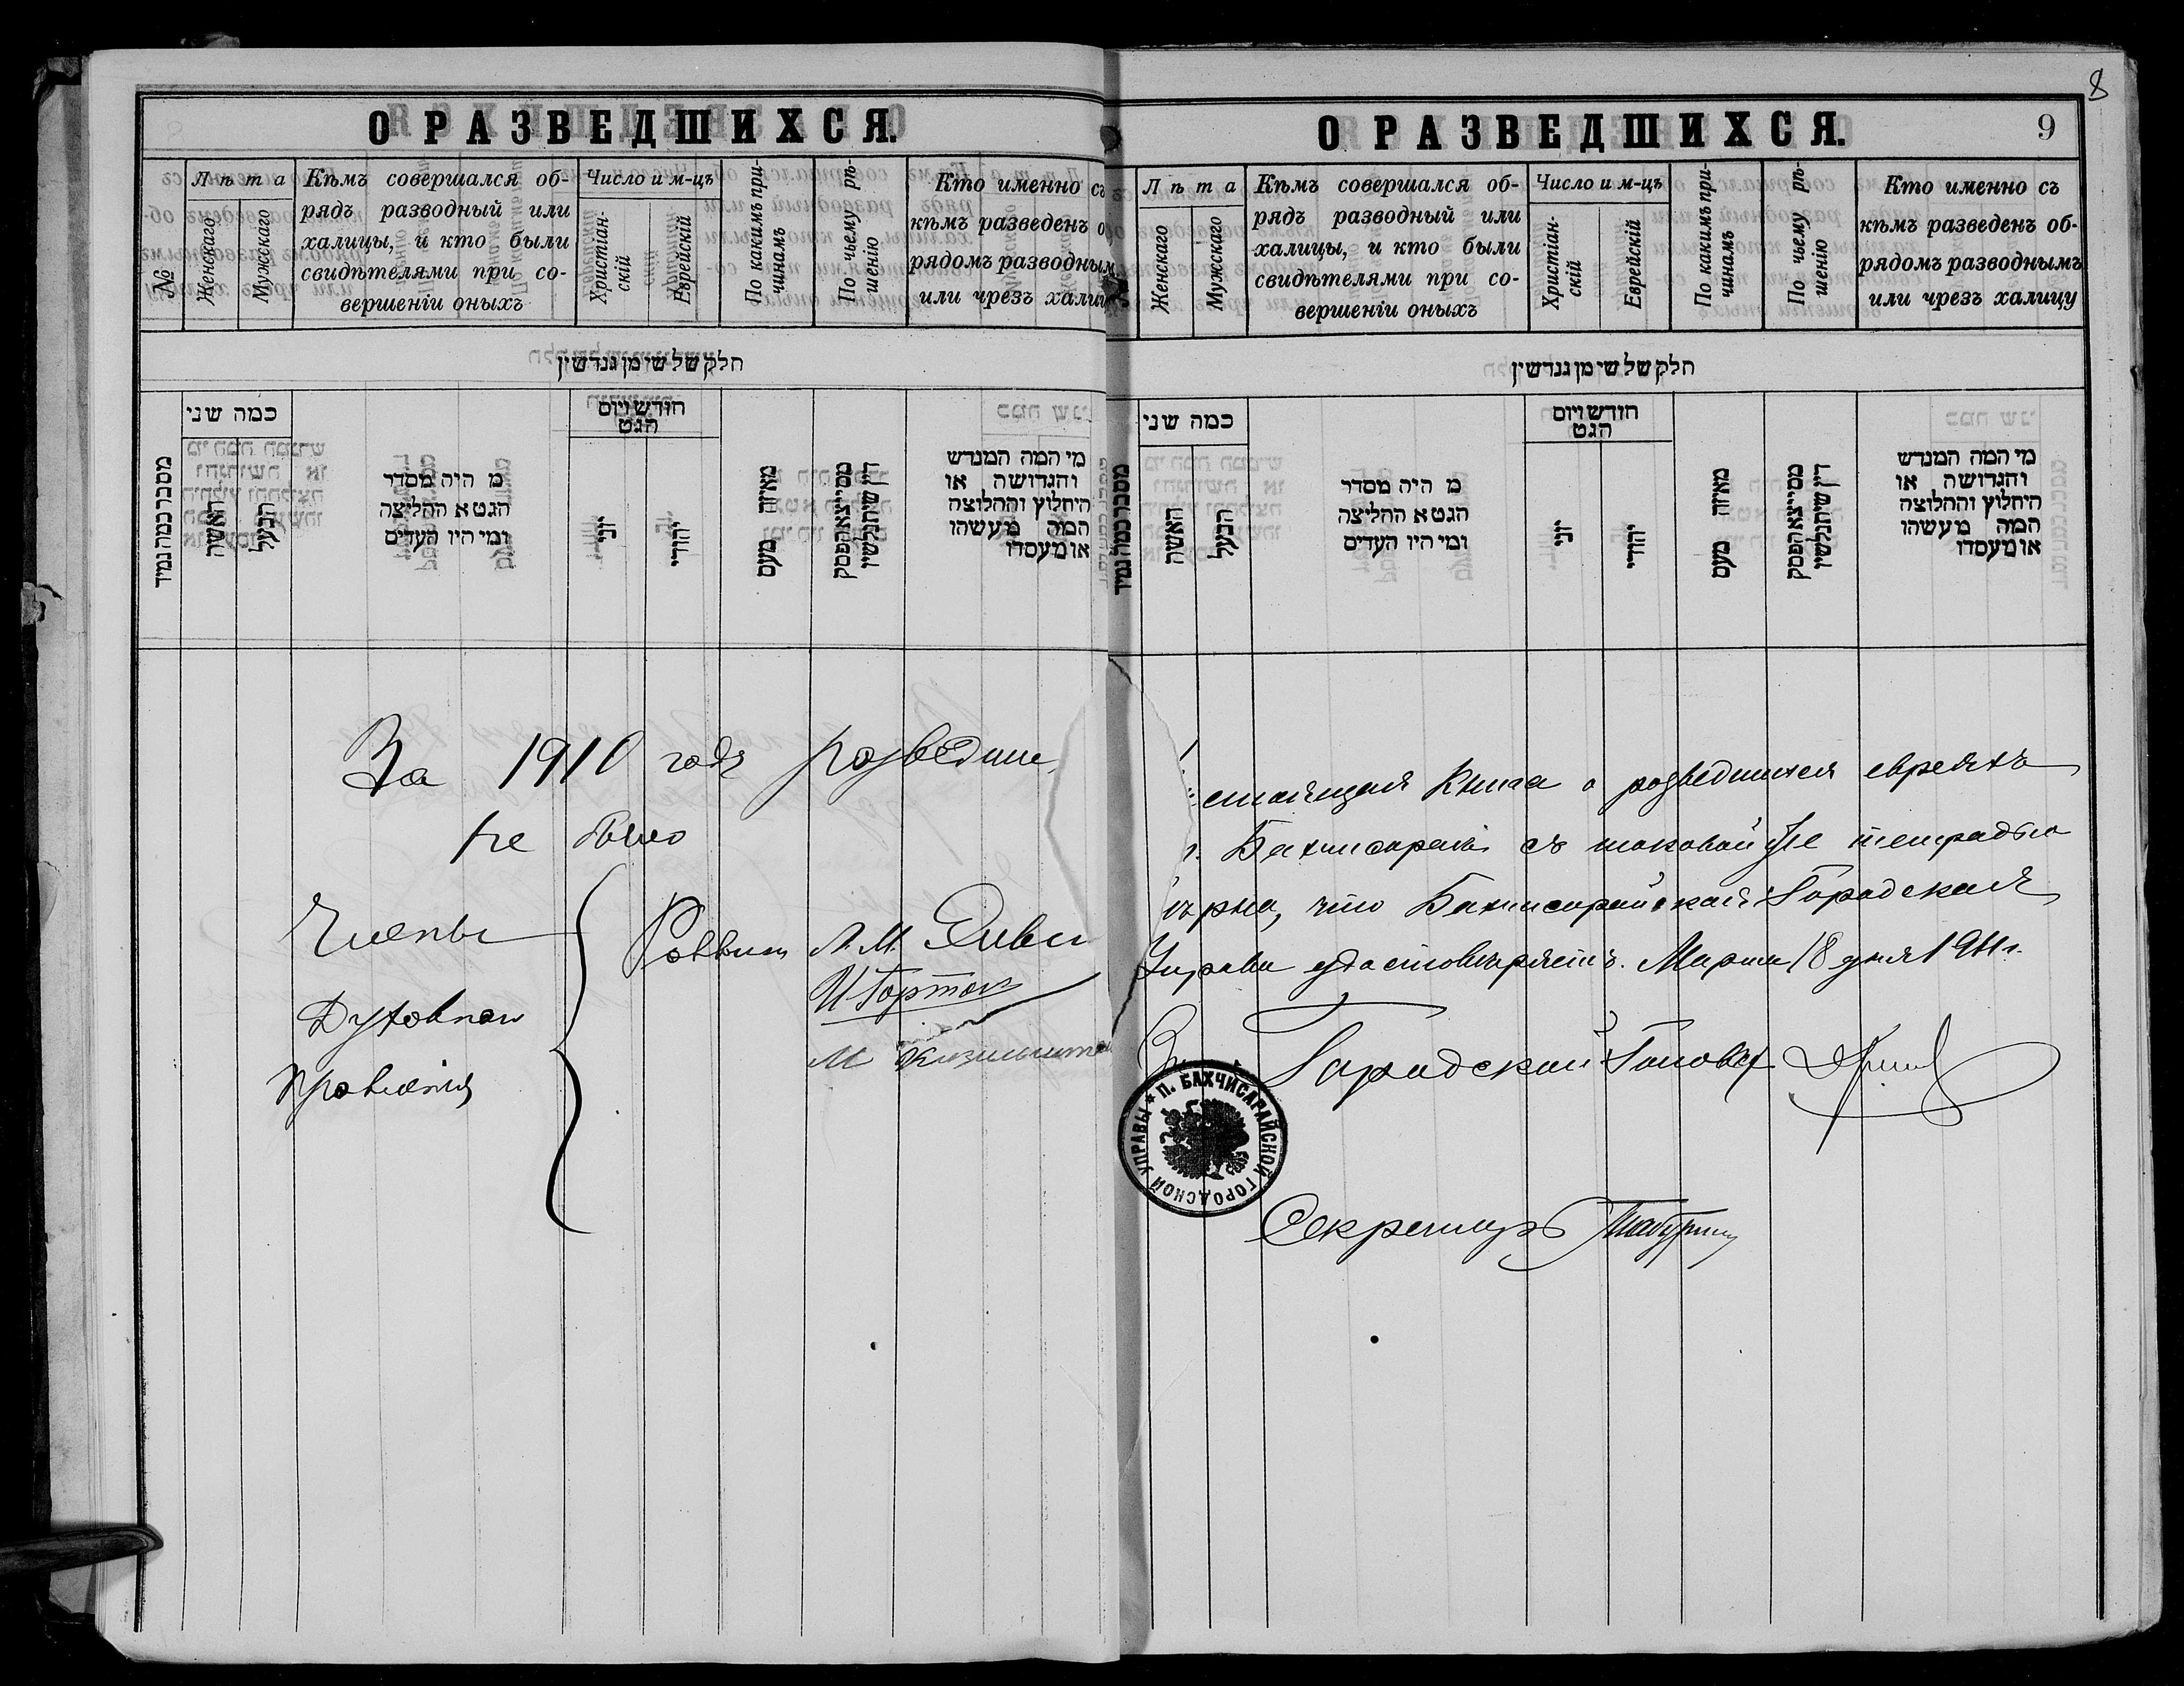 О РАЗВЕДШИХСЯ.
№
Лѣта
Женскаго
Мужскаго
Кѣмъ совершался об-
рядъ разводный или
халицы, и кто были
свидѣтелями при со-
вершеніи оныхъ
Число и м-цъ
Христіан-
скій
Еврейскій
По какимъ при-
чинамъ
По чьему рѣ-
шенію
Кто именно съ
кѣмъ разведенъ о
рядомъ разводным
или чрезъ хали
חלק של שי מן גנדשין
כמה שני
האשה
הבעל
מ היה מסדר
הגט א ההליצה
ומי היו העדים
חודש ויום
הגט
יוני
יהודי
מאיזה מעם
ממי יצא הפסק
דין שיתגלשין
מי המה המגדש
והגדושה או
היחלוץ וההלוצה
המה מעשהו
או מעסדו
За 1910 годъ разведши
не было
Члены
Духовнаго
Правленія
Раввинъ Л. М.
И Гортон
М
8
О РАЗВЕДШИХСЯ.
9
Лѣта
Женскаго
Мужскаго
Кѣмъ совершался об-
рядъ разводный или
халицы, и кто были
свидѣтелями при со-
вершеніи оныхъ
Число и м-цъ
Христіан-
скій
Еврейскій
По какимъ при-
чинамъ
По чьему рѣ-
шенію
Кто именно съ
кѣмъ разведенъ об-
рядомъ разводнымъ
или чрезъ халицу
חלק של שי מן גנדשין
כמה שני
האשה
הבעל
מ היה מסדר
הגט א ההליצה
ומי היו העדים
חודש ויום
הגט
יוני
יהודי
מאיזה מעם
ממי יצא הפסק
דין שיתגלשין
מי המה המגדש
והגדושה או
היחלוץ וההלוצה
המה מעשהו
או מעסדו
стоящая книга о разведшихся евреяхъ
г. Бахчисарая съ таковой же тетрадью
вѣрна, что Бахчисарайская Городская
Управа удостовѣряетъ. Марта 18 дня 1911 г.
Городской Голова
П. БАХЧИСАРАЙСКОЙ ГОРОДСКОЙ УПРАВЫ
Секретарь